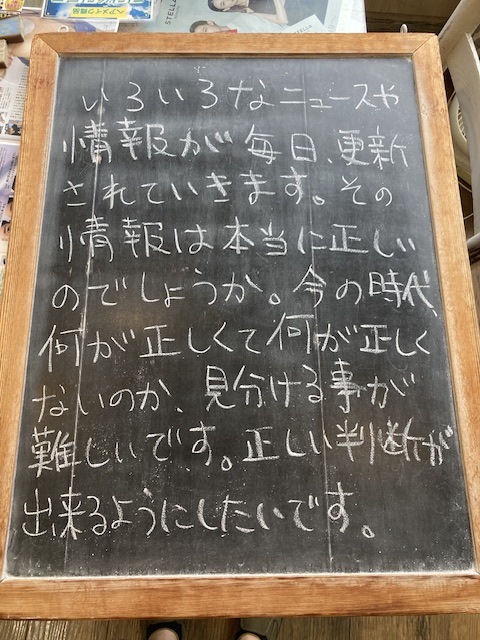 ヘアメイク商品
STELLA
いろいろなニュースや
情報が毎日、更新
されていきます。その
情報は本当に正しい
のでしょうか。今の時代、
何が正しくて何が正しく
ないのか、見分ける事が
難しいです。正しい判断が
出来るようにしたいです。